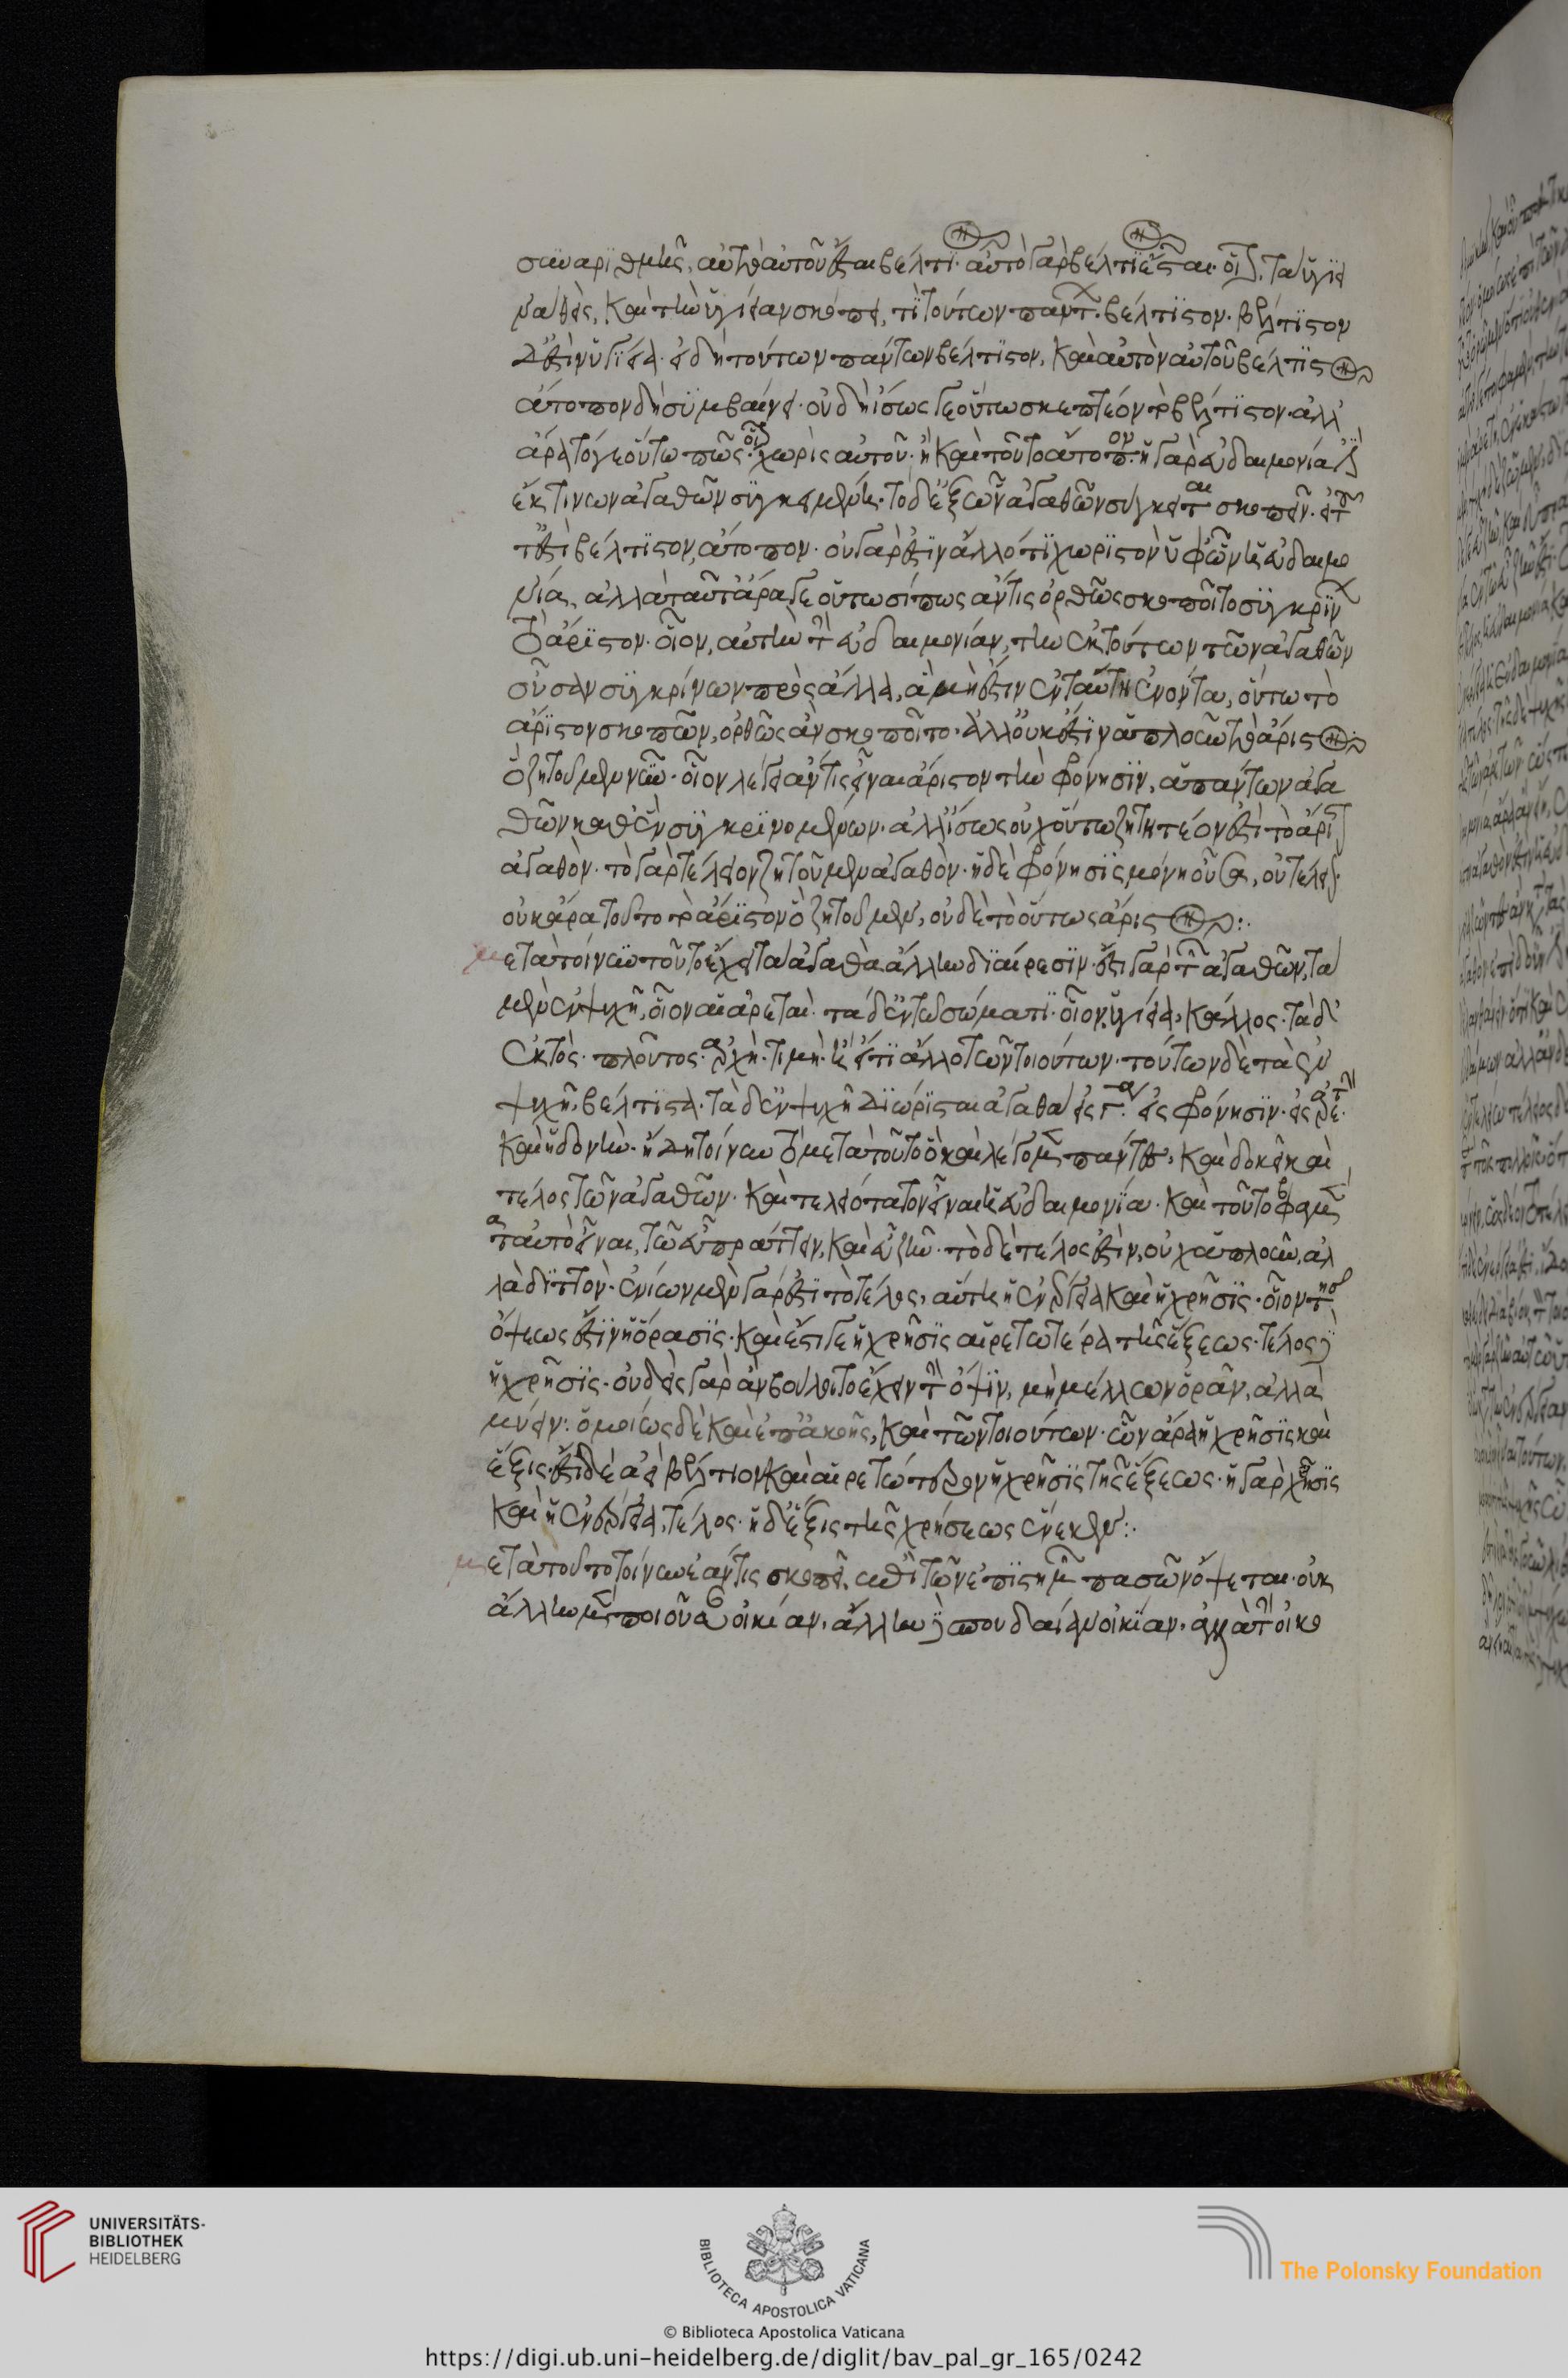 συναριθμῆς, αὐτὸ αὐτοῦ ἔσται βέλτιον· αὐτὸ γὰρ βέλτιον ἔσται· οἷον, τὰ ὑγιει
νὰ θεὶς, καὶ τὴν ὑγίειαν σκόπει, τί τούτων πάντων βέλτιστον· βέλτιστον
δ' ἐστὶν ὑγίεια· εἰ δὴ τούτων πάντων βέλτιστον, καὶ αὐτὸν αὐτοῦ βέλτιστον
ἄτοπον δὴ συμβαίνει· οὐ δὴ ἴσως γε οὕτω σκεπτέον τὸ βέλτιστον· ἀλλ'
ἆρα τό γε οὕτω πῶς· οἷον χωρὶς αὐτοῦ· ἢ καὶ τοῦτο ἄτοπον· ἡ γὰρ εὐδαιμονία ἐστὶν
ἔκ τινων ἀγαθῶν συγκειμένη· τὸ δὲ ἐξ ὧν ἀγαθῶν συγκειται σκοπεῖν· εἰ τοῦ
τό ἐστι βέλτιστον, ἄτοπον· οὐ γὰρ ἐστὶν ἄλλό τι χωριστὸν ὑφ' ὧν ἡ εὐδαιμο
νία, ἀλλὰ ταῦτα ἆρά γε οὑτωσί πως ἄν τις ὀρθῶς σκοποῖτο συγκρίνων
τὸ ἄριστον· οἷον, αὐτὴν τὴν εὐδαιμονίαν, τὴν ἐκ τούτων τῶν ἀγαθῶν
οὖσαν συγκρίνων πρὸς ἄλλα, ἃ μὴ ἔστιν ἐν ταύτῃ ἐνόντα, οὕτω τὸ
ἄριστον σκοπῶν, ὀρθῶς ἂν σκοποῖτο· ἀλλ' οὐκ ἔστιν ἁπλοῦν τὸ ἄριστον
ὃ ζητοῦμεν νῦν· οἷον λέγει ἄν τις εἶναι ἄριστον τὴν φρόνησιν, ἁπάντων ἀγα
θῶν καθ' ἓν συγκρινομένων· ἀλλ' ἴσως οὐχ οὕτω ζητητέον ἐστὶ τὸ ἄριστον
ἀγαθόν· τὸ γὰρ τέλειον ζητοῦμεν ἀγαθόν· ἡ δὲ φρόνησις μόνη οὖσα, οὐ τέλειον·
οὐκ ἄρα τοῦτο τὸ ἄριστον ὃ ζητοῦμεν, οὐδὲ τὸ οὕτως ἄριστον:·
μετὰ τοίνυν τοῦτο ἔχει τὰ ἀγαθὰ ἄλλην διαίρεσιν· ἔστι γὰρ τῶν ἀγαθῶν, τὰ
μὲν ἐν ψυχῇ, οἷον αἱ ἀρεταί· τὰ δ' ἐν τῶ σώματι· οἷον, ὑγίεια, κάλλος· τὰ δ'
ἐκτός· πλοῦτος· ἀρχή· τιμή· ἢ εἴ τι ἄλλο τῶν τοιούτων· τούτων δὲ τὰ ἐν
ψυχῇ, βέλτιστα· τὰ δ' ἐν ψυχῇ διώρισται ἀγαθὰ εἰς τρία· εἰς φρόνησιν· εἰς ἀρετήν·
καὶ ἡδονήν· ἤδη τοίνυν τὸ μετὰ τοῦτο ὃ καὶ λέγομεν πάντες, καὶ δοκεῖ καὶ
τέλος τῶν ἀγαθῶν· καὶ τελειότατον εἶναι ἡ εὐδαιμονία· καὶ τοῦτό φαμεν
ταὐτὸ εἶναι, τῶ εὖ πράττειν, καὶ εὖ ζῆν· τὸ δὲ τέλος ἐστὶν, οὐχ ἁπλοῦν, ἀλ
λὰ διττόν· ἐνίων μὲν γάρ ἐστι τὸ τέλος, αὐτὴ ἡ ἐνέργεια καὶ ἡ χρῆσις· οἷον τῆς
ὄψεως ἐστὶν ἡ ὅρασις· καὶ ἔστι γε ἡ χρῆσις αἱρετωτέρα τῆς ἕξεως· τέλος γὰρ
ἡ χρῆσις· οὐδεὶς γὰρ ἂν βούλοιτο ἔχειν τὴν ὄψιν, μὴ μέλλων ὁρᾶν, ἀλλὰ
μύειν: ὁμοίως δὲ καὶ ἐπ' ἀκοῆς, καὶ τῶν τοιούτων· ὧν ἄρα ἡ χρῆσις καὶ
ἕξις· ἔστι δὲ ἀεὶ βέλτιον καὶ αἱρετώτερον ἡ χρῆσις τῆς ἕξεως· ἡ γὰρ χρῆσις
καὶ ἡ ἐνέργεια, τέλος· ἡ δ' ἕξις τῆς χρήσεως ἕνεκεν:·
μετὰ τοῦτο τοίνυν ἐάν τις σκοπῆ, ἐπὶ τῶν ἐπιστημῶν πασῶν ὄψεται· οὐκ
ἄλλην μὲν ποιοῦσαν οἰκίαν, ἄλλην δὲ σπουδαίαν οἰκίαν, ἀλλὰ τὴν οἰκο
UNIVERSITÄTS-
BIBLIOTHEK
HEIDELBERG
BIBLIOTECA APOSTOLICA VATICANA
The Polonsky Foundation
© Biblioteca Apostolica Vaticana
https://digi.ub.uni-heidelberg.de/diglit/bav_pal_gr_165/0242